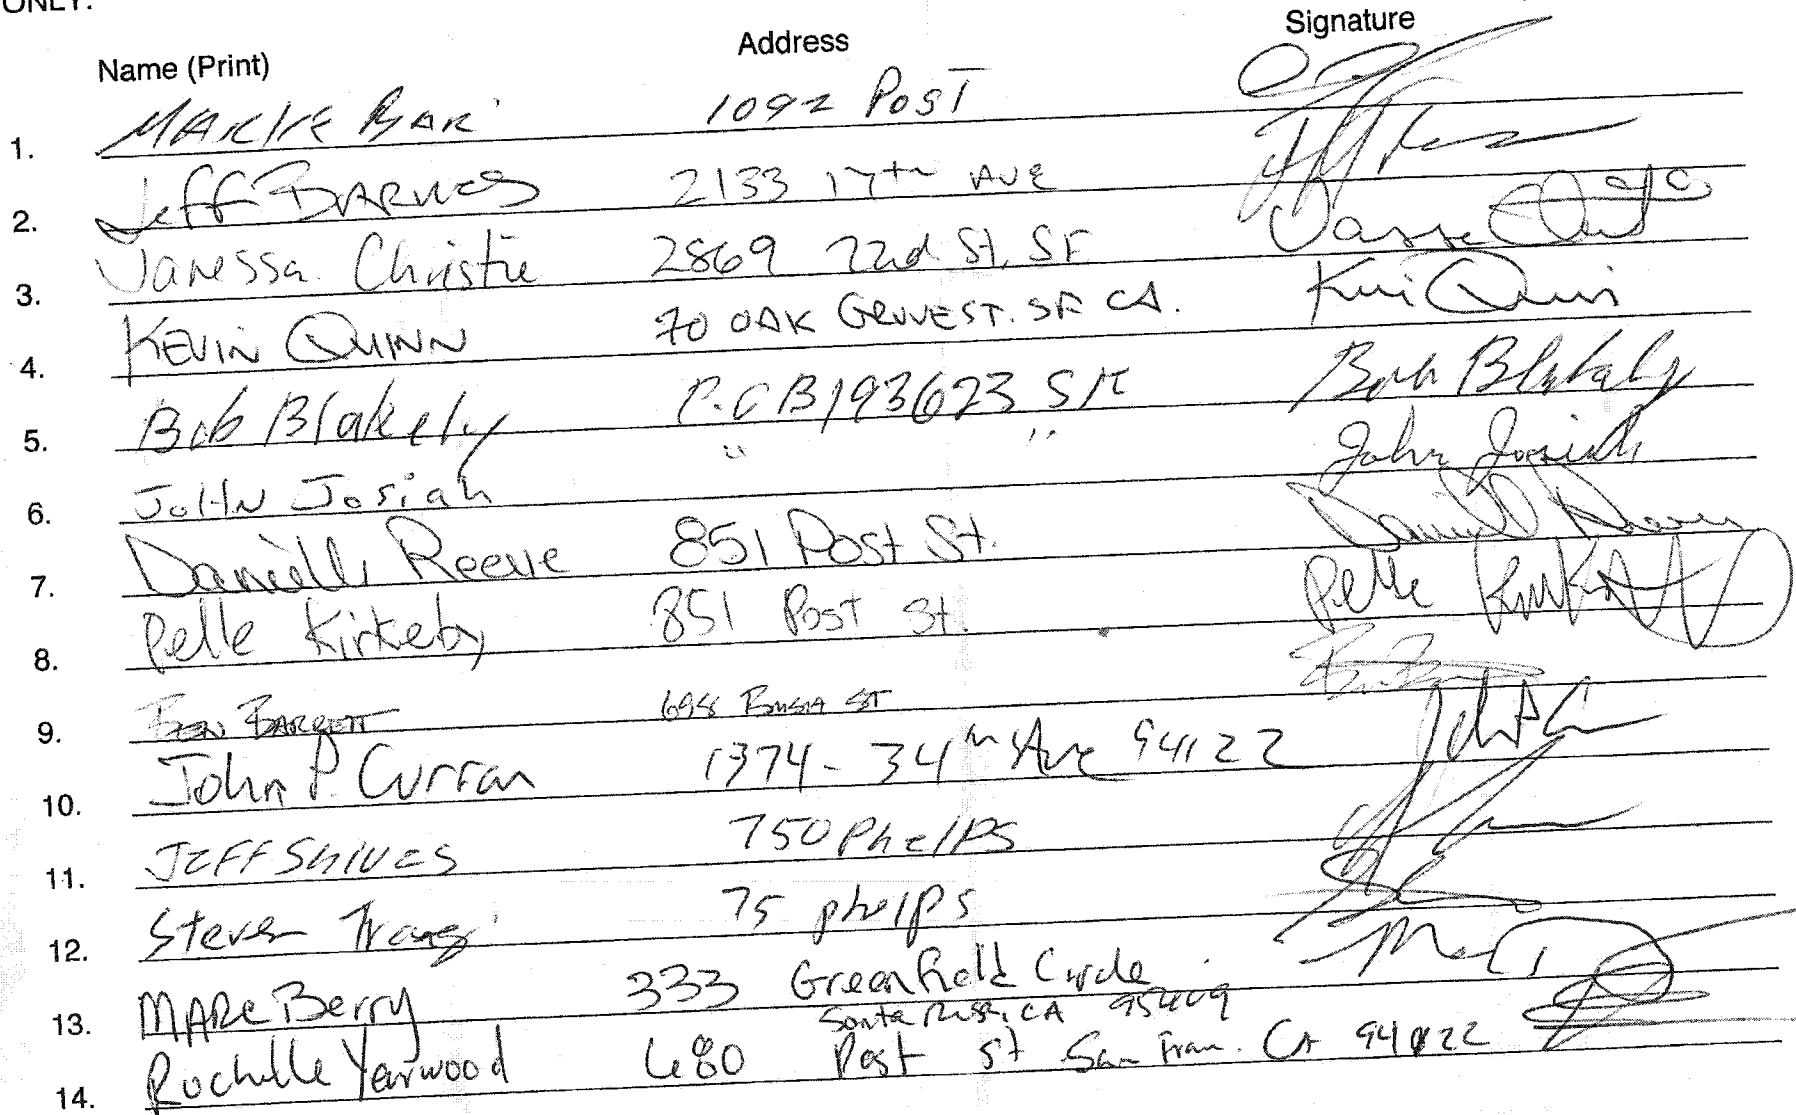 ONLY.
Name (Print) Address Signature
1. 1092 Post
2. Jeff BARNES 2133 17th AVE
3. Vanessa Christie 2869 22nd St, SF
4. KEVIN QUINN 70 OAK GROVE ST. SF CA. Kevin Quinn
5. Bob Blakely P.O B 193623 SF Bob Blakely
6. JOHN Josiah " " John Josiah
7. Danielle Reeve 851 Post St. Danielle Reeve
8. Pelle Kirkeby 851 Post St. Pelle
9. BEN BARGETT 698 BUSH ST
10. John P Curran 1374 - 34th Ave 94122
11. JEFF SHIVES 750 Phelps
12. Steven 75 phelps
13. MARC Berry 333 Greenfield Circle
Santa Rosa, CA 95409
14. Rochelle Yearwood 680 Post St San Fran. CA 94122